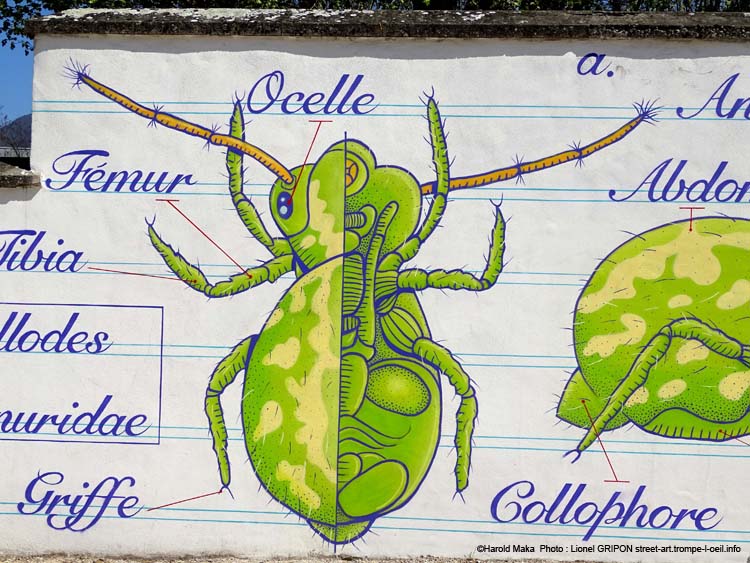 a.
Ocelle
An
Fémur
Abdom
Tibia
llodes
nuridae
Griffe
Collophore
©Harold Maka Photo : Lionel GRIPON street-art.trompe-l-oeil.info